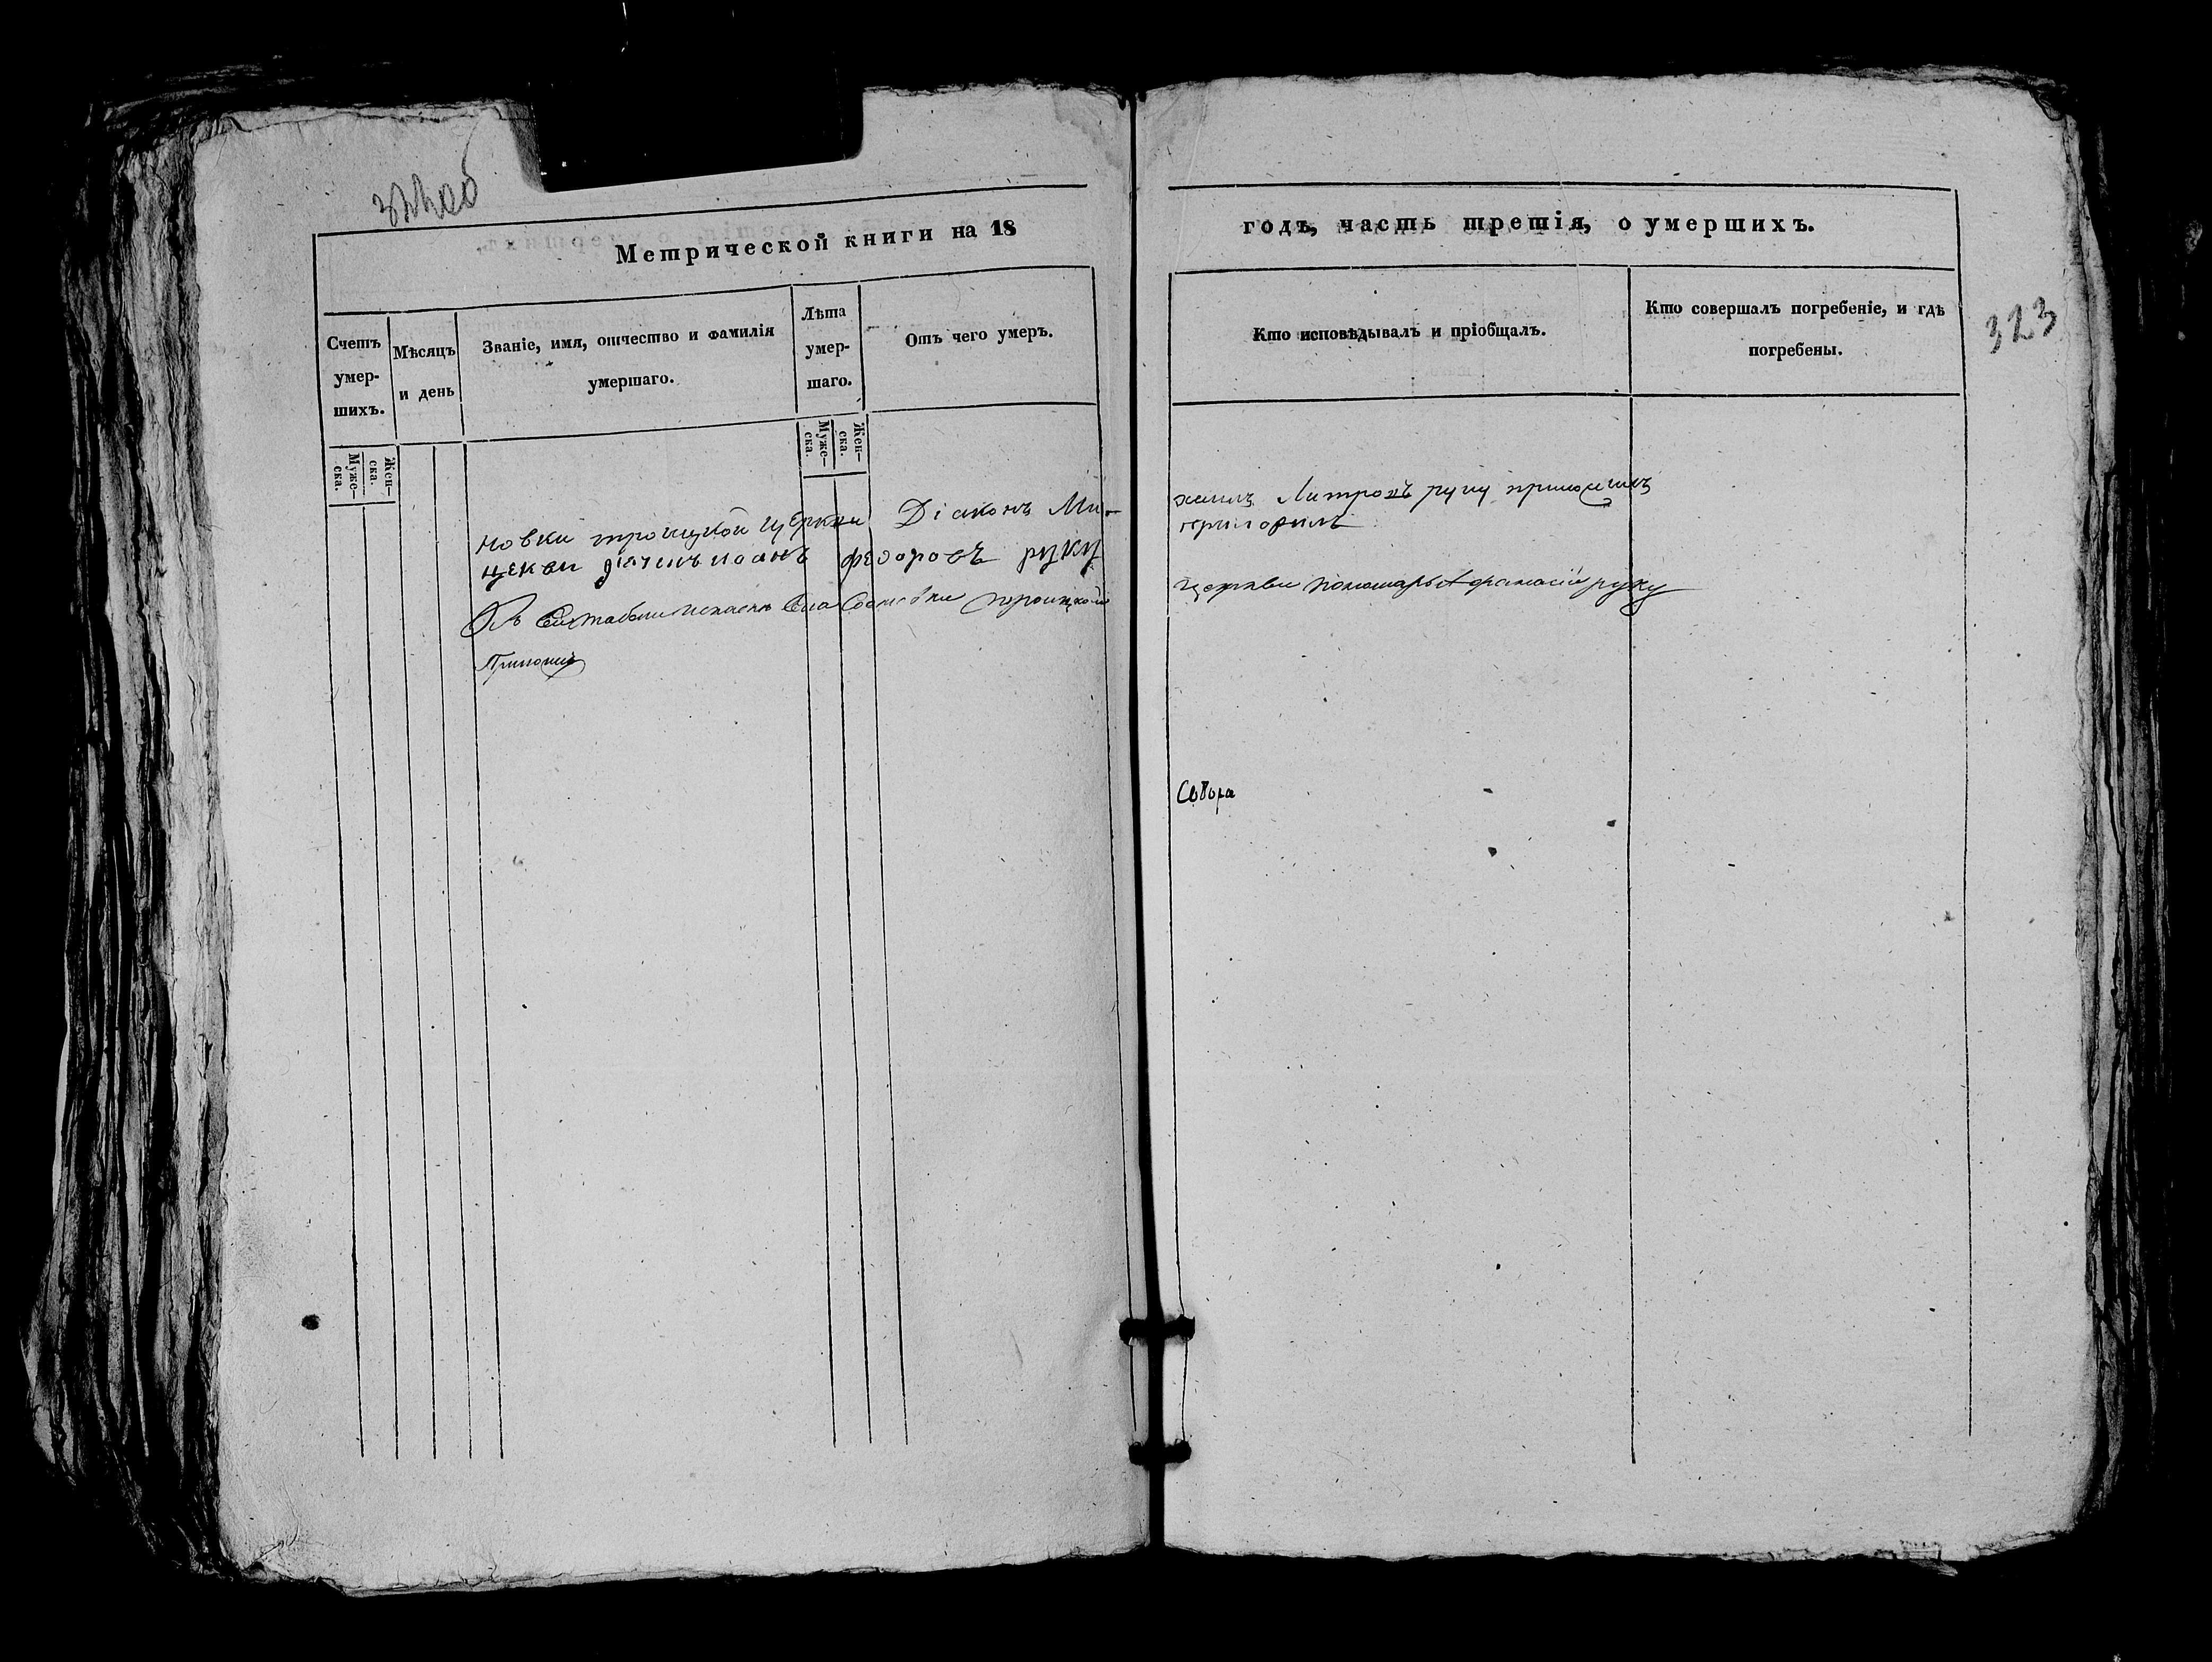 322об
Метрической книги на 18
Счетъ умер-шихъ.
Муже-ска.
Жен-ска.
Мѣсяцъ и день
Званіе, имя, отчество и фамилія умершаго.
Лѣта умер-шаго.
Муже-ска.
Жен-ска.
Отъ чего умеръ.
новки троицкой церкви Діаконъ Ми-
цекви дячокъ иоанъ федоровъ руку
троицкой
Приложилъ
годъ, часть третія, о умершихъ.
323
Кто исповѣдывалъ и пріобщалъ.
Кто совершалъ погребеніе, и гдѣ погребены.
руку приложилъ
церкви пономарь Афанасій руку
Собора